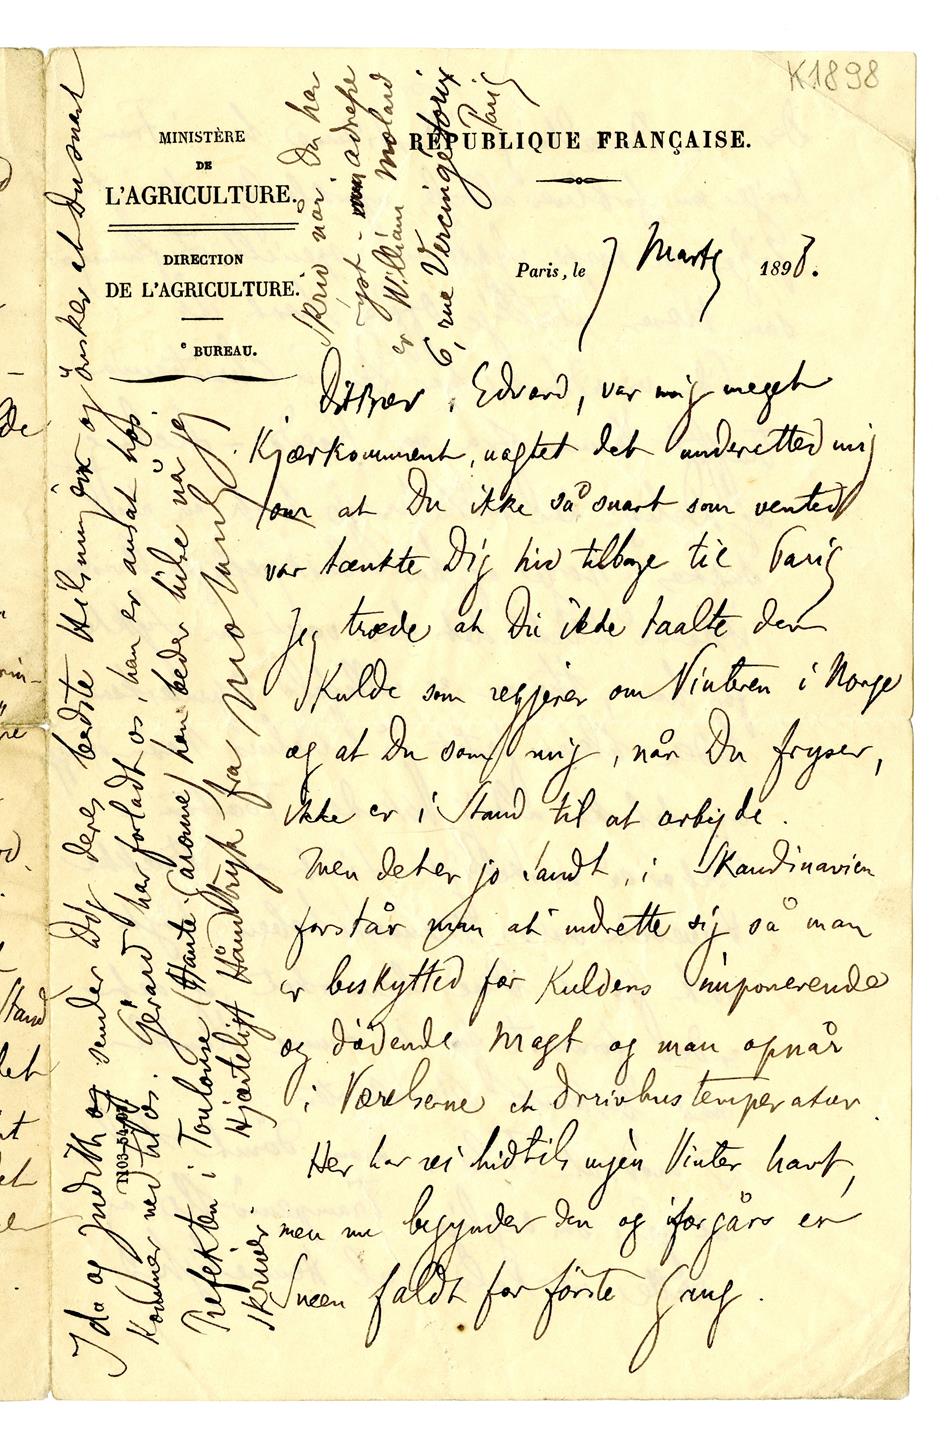 K1898
MINISTÈRE
DE
L'AGRICULTURE.
DIRECTION
DE L'AGRICULTURE.
e BUREAU.
RÉPUBLIQUE FRANÇAISE.
Paris, le 7 Marts 1898.
Dit Brev, Edvard, var mig meget
Kjærkomment, uagtet det underetted mig
om at Du ikke så snart som vented
var tænkte Dig hid tilbage til Paris
Jeg trode at Du ikke taalte den
Kulde som regjerer om Vinteren i Norge
og at Du som mig, når Du fryser,
ikke er i Stand til at arbejde.
Men det er jo Sandt, i Skandinavien
forstår man at indrette sig så man
er beskytted for Kuldens imponerende
og dödende Magt og man opnår
i Værelserne en Drivhustemperatur.
Her har vi hidtils ingen Vinter havt,
men nu begynder den og iforgårs er
Sneen faldt for förste Gang.
Ida og Judith og sender Dig deres bedste Hilsninger og önsker at Du snart
Kommer ned til os. Gérard har forladt os, han er ansat hos
Prefekten i Toulouse (Haute Garonne) han beder hilse når jeg
skriver. Hjærteligt Håndtryk fra Molard
1103-54-97
Skriv når Du har
lyst - min adresse
er William Molard
6, rue Vercingétorix
Paris